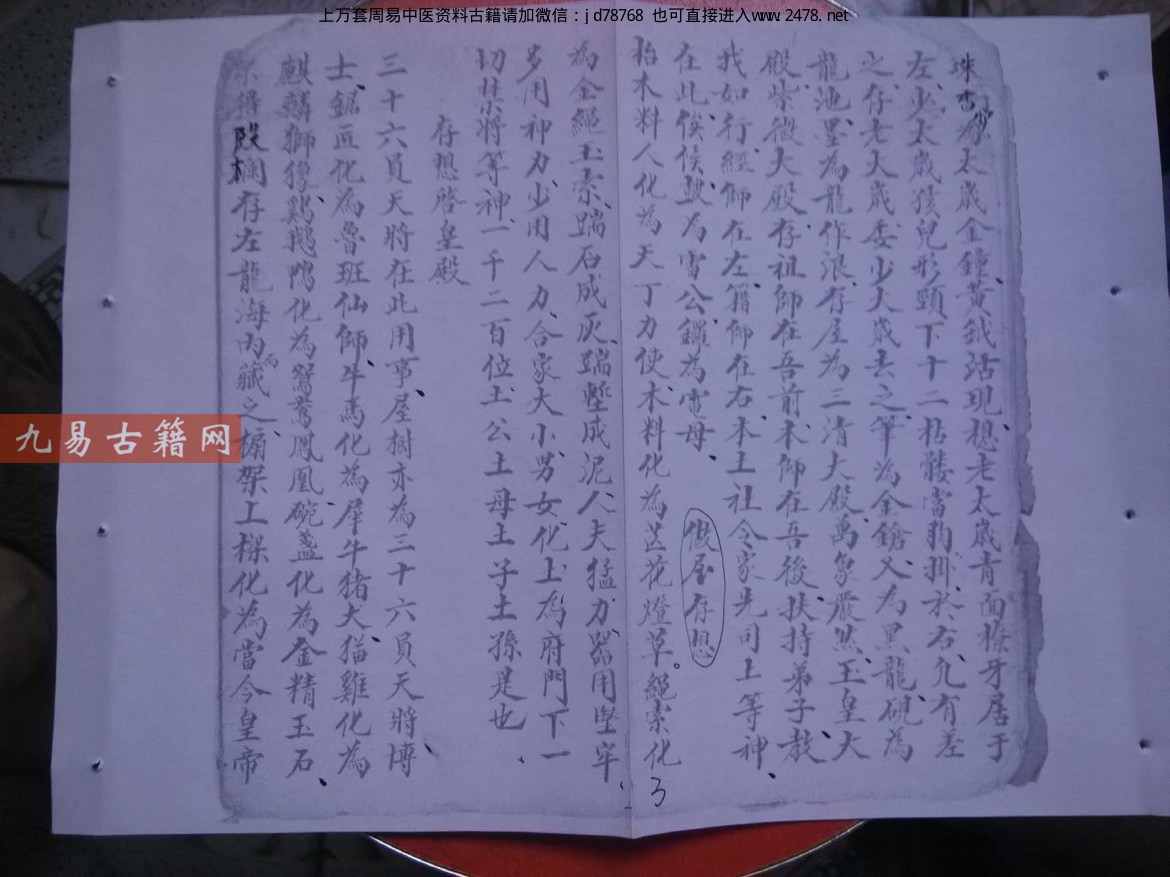 上万套周易中医资料古籍请加微信：jd78768 也可直接进入www.2478.net
九易古籍网
珠杏沙为太歳金鐘黃鈸活現想老太歳青面獠牙居于
左少太歳孩兒形頸下十二枯髅當豹掛於右凢有差
之存老大歳委少大歳去之筆為金鎗又為黑龍硯為
龍池墨為龍作浪存屋為三清大殿萬象嚴然玉皇大
殿紫微大殿存祖師在吾前本師在吾後扶持弟子教
我如行經師在左籍師在右本土社令家先司上等神
在此俟候鼓為雷公鑼為電母
做屋存想
抬木料人化為天丁力使木料化為芒花燈草。繩索化
3
為金繩玉索踹石成灰踹塹成泥人夫猛力器用堅牢
多用神力少用人力合家大小男女化上為府門下一
切禁將等神一千二百位土公土母土子土孫是也
存想啓皇殿
三十六員天將在此用事屋樹亦為三十六員天將博
士鋸匠化為魯班仙師牛馬化為犀牛猪犬猫雞化為
麒麟獅𤢪鷄鵝鴨化為鴛鴦鳳凰碗盞化為金精玉石
殿欄存左龍海內而藏之搧架上樑化為當今皇帝